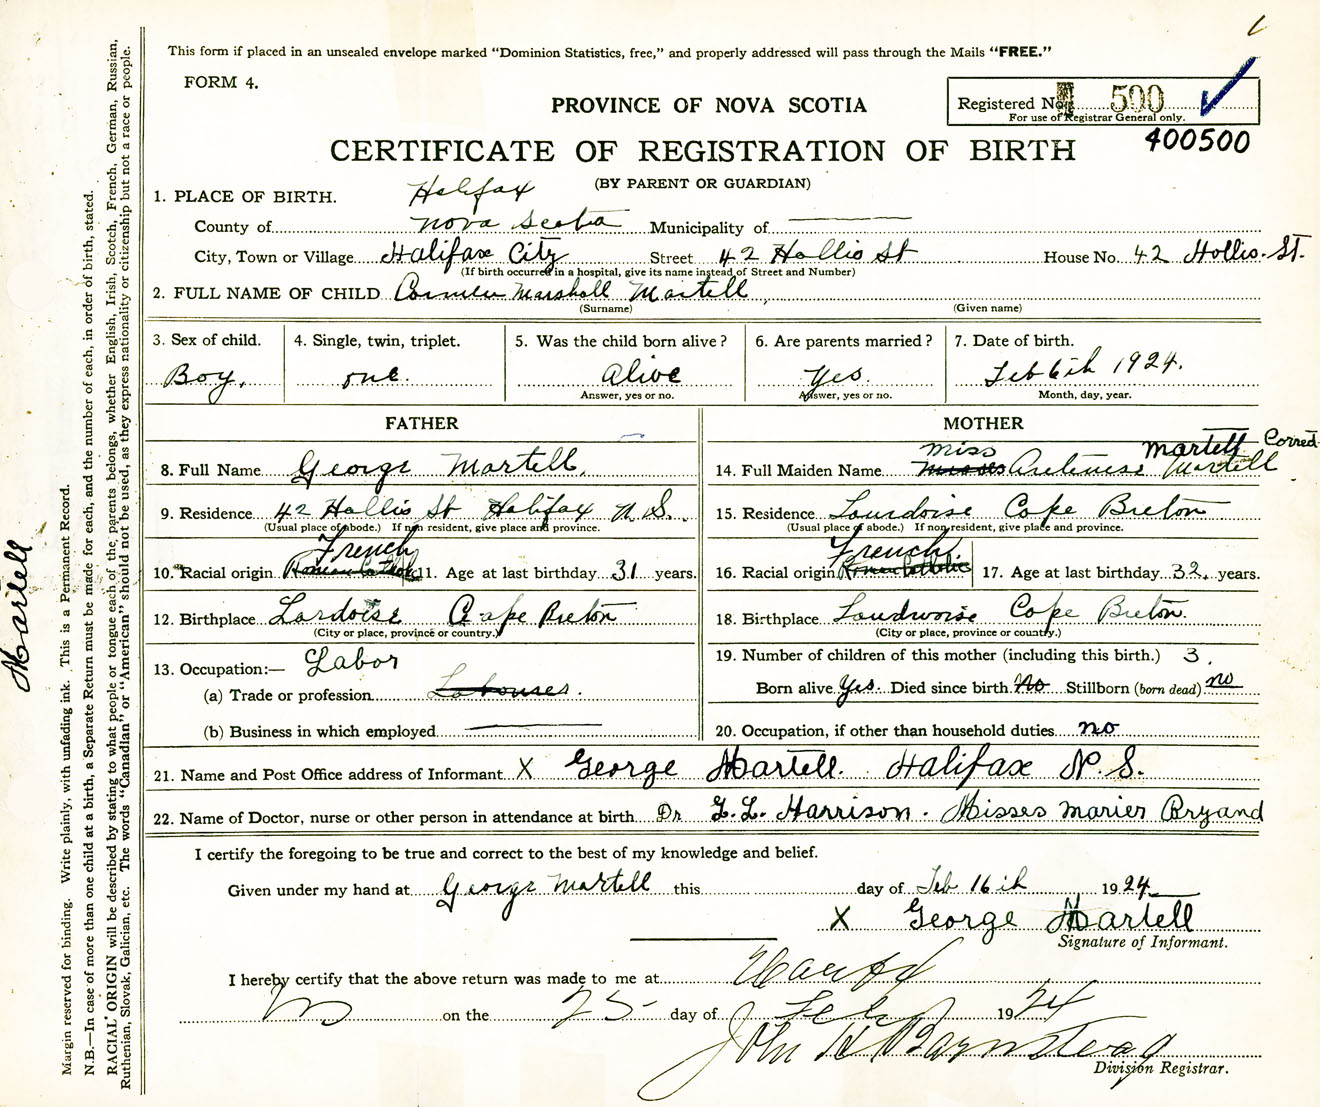 This form if placed in an unsealed envelope marked "Dominion Statistics, free," and properly addressed will pass through the Mails "FREE."
FORM 4.
PROVINCE OF NOVA SCOTIA
Registered No. 500
For use of Registrar General only.
400500
CERTIFICATE OF REGISTRATION OF BIRTH
(BY PARENT OR GUARDIAN)
1. PLACE OF BIRTH. Halifax
County of Nova Scotia Municipality of
City, Town or Village Halifax City Street 42 Hollis St House No. 42 Hollis. St.
(If birth occurred in a hospital, give its name instead of Street and Number)
2. FULL NAME OF CHILD Marshall Martell
(Surname) (Given name)
3. Sex of child. 4. Single, twin, triplet. 5. Was the child born alive? 6. Are parents married? 7. Date of birth.
Boy. one. Alive Yes. Feb 6th 1924.
Answer, yes or no. Answer, yes or no. Month, day, year.
FATHER MOTHER
8. Full Name George Martell.
9. Residence 42 Hollis St Halifax N.S.
(Usual place of abode.) If non resident, give place and province.
French
10. Racial origin Roman Catholic 11. Age at last birthday 31 years.
12. Birthplace Lardoise Cape Breton
(City or place, province or country.)
13. Occupation:— Labor
(a) Trade or profession
(b) Business in which employed
miss Martell Corred
14. Full Maiden Name Martell
15. Residence Lourdoise Cape Breton
(Usual place of abode.) If non resident, give place and province.
French.
16. Racial origin Roman Catholic 17. Age at last birthday 32. years.
18. Birthplace Loudwoise Cape Breton.
(City or place, province or country.)
19. Number of children of this mother (including this birth.) 3.
Born alive Yes. Died since birth No Stillborn (born dead) no
20. Occupation, if other than household duties no
21. Name and Post Office address of Informant X George Martell. Halifax N.S.
22. Name of Doctor, nurse or other person in attendance at birth Dr Harrison. Misses Marier Bryand
I certify the foregoing to be true and correct to the best of my knowledge and belief.
Given under my hand at George Martell this day of Feb 16th 1924
X George Martell
Signature of Informant.
I hereby certify that the above return was made to me at
on the 25 day of Feb 1924
John H Barnstead
Division Registrar.
Martell
Margin reserved for binding. Write plainly, with unfading ink. This is a Permanent Record.
N.B.—In case of more than one child at a birth, a Separate Return must be made for each, and the number of each, in order of birth, stated.
RACIAL ORIGIN will be described by stating to what people or tongue each of the parents belongs, whether English, Irish, Scotch, French, German, Russian,
Ruthenian, Slovak, Galician, etc. The words "Canadian" or "American" should not be used, as they express nationality or citizenship but not a race or people.